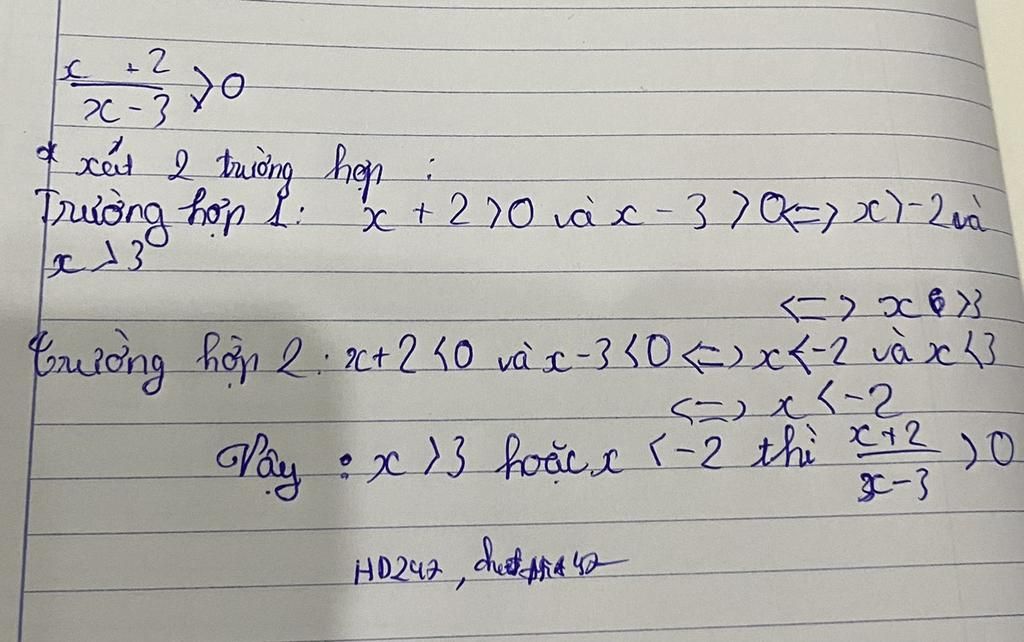 x + 2 / x - 3 > 0
* xét 2 trường hợp :
Trường hợp 1: x + 2 > 0 và x - 3 > 0 <=> x > -2 và
x > 3
<=> x > 3
trường hợp 2 : x + 2 < 0 và x - 3 < 0 <=> x < -2 và x < 3
<=> x < -2
Vậy : x > 3 hoặc x < -2 thì x + 2 / x - 3 > 0
HD247,